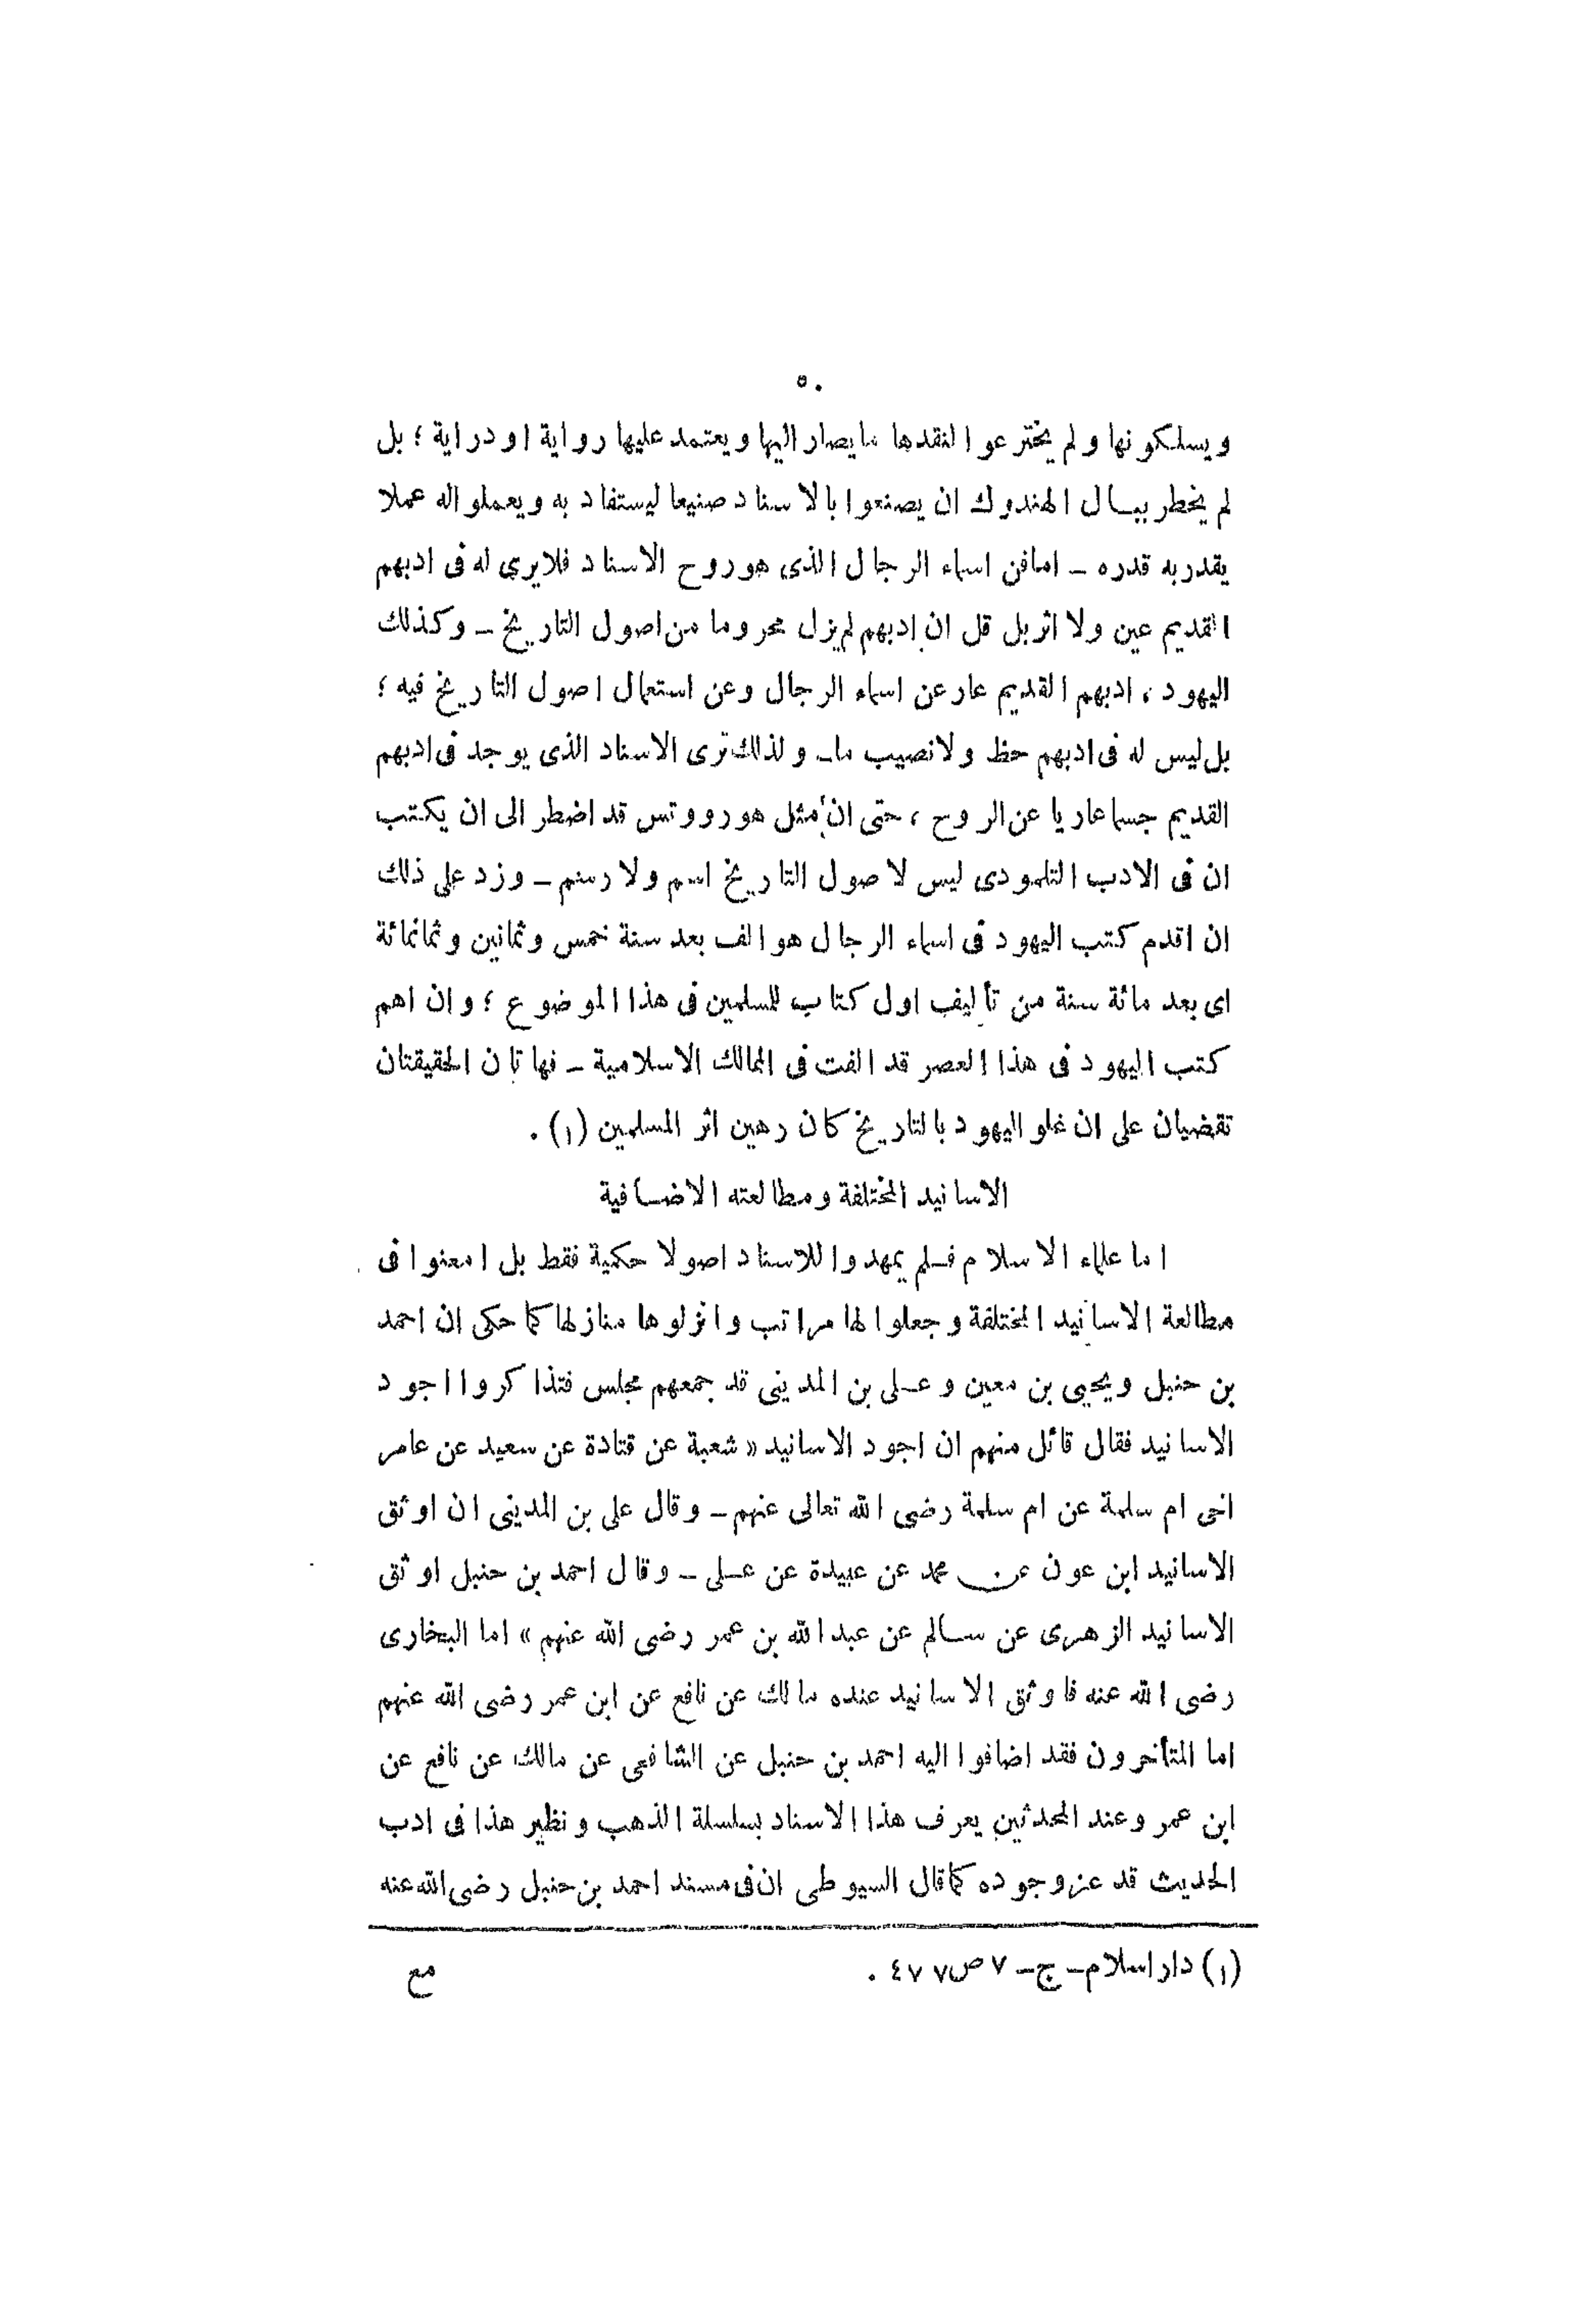 ٥٠
ويسلكونها ولم يخترعوا لنقدها ما يصار اليها ويعتمد عليها رواية او دراية ؛ بل
لم يخطر ببال الهندوك ان يصنعوا بالاسناد صنيعا ليستفاد به ويعملوا له عملا
يقدر به قدره ـ اما فن اسماء الرجال الذى هو روح الاسناد فلا يرى له فى ادبهم
القديم عين ولا اثر بل قل ان ادبهم لم يزل محروما من اصول التاريخ ـ وكذلك
اليهود ، ادبهم القديم عار عن اسماء الرجال وعن استعمال اصول التاريخ فيه ؛
بل ليس له فى ادبهم حظ ولا نصيب ما ـ ولذلك ترى الاسناد الذى يوجد فى ادبهم
القديم جسما عاريا عن الروح ، حتى ان مثل هوروو تس قد اضطر الى ان يكتب
ان فى الادب التلمودى ليس لاصول التاريخ اسم ولا رسم ـ وزد على ذلك
ان اقدم كتب اليهود فى اسماء الرجال هو الف بعد سنة خمس وثمانين وثمانمائة
اى بعد مائة سنة من تأليف اول كتاب للمسلمين فى هذا الموضوع ؛ وان اهم
كتب اليهود فى هذا العصر قد الفت فى الممالك الاسلامية ـ فهاتان الحقيقتان
تقضيان على ان غلو اليهود بالتاريخ كان رهين اثر المسلمين (١) .
الاسانيد المختلفة ومطالعته الاضافية
اما علماء الاسلام فلم يمهدوا للاسناد اصولا حكمية فقط بل امعنوا فى
مطالعة الاسانيد المختلفة وجعلوا لها مراتب وانزلوها منازلها كما حكى ان احمد
بن حنبل ويحيى بن معين وعلى بن المدينى قد جمعهم مجلس فتذاكروا اجود
الاسانيد فقال قائل منهم ان اجود الاسانيد « شعبة عن قتادة عن سعيد عن عامر
اخى ام سلمة عن ام سلمة رضى الله تعالى عنهم ـ وقال على بن المدينى ان اوثق
الاسانيد ابن عون عن محمد عن عبيدة عن على ـ وقال احمد بن حنبل اوثق
الاسانيد الزهرى عن سالم عن عبد الله بن عمر رضى الله عنهم » اما البخارى
رضى الله عنه فاوثق الاسانيد عنده مالك عن نافع عن ابن عمر رضى الله عنهم
اما المتأخرون فقد اضافوا اليه احمد بن حنبل عن الشافعى عن مالك عن نافع عن
ابن عمر وعند المحدثين يعرف هذا الاسناد بسلسلة الذهب ونظير هذا فى ادب
الحديث قد عز وجوده كما قال السيوطى ان فى مسند احمد بن حنبل رضى الله عنه
(١) دار اسلام ـ ج ـ ٧ ص ٤٧٧ .
مع